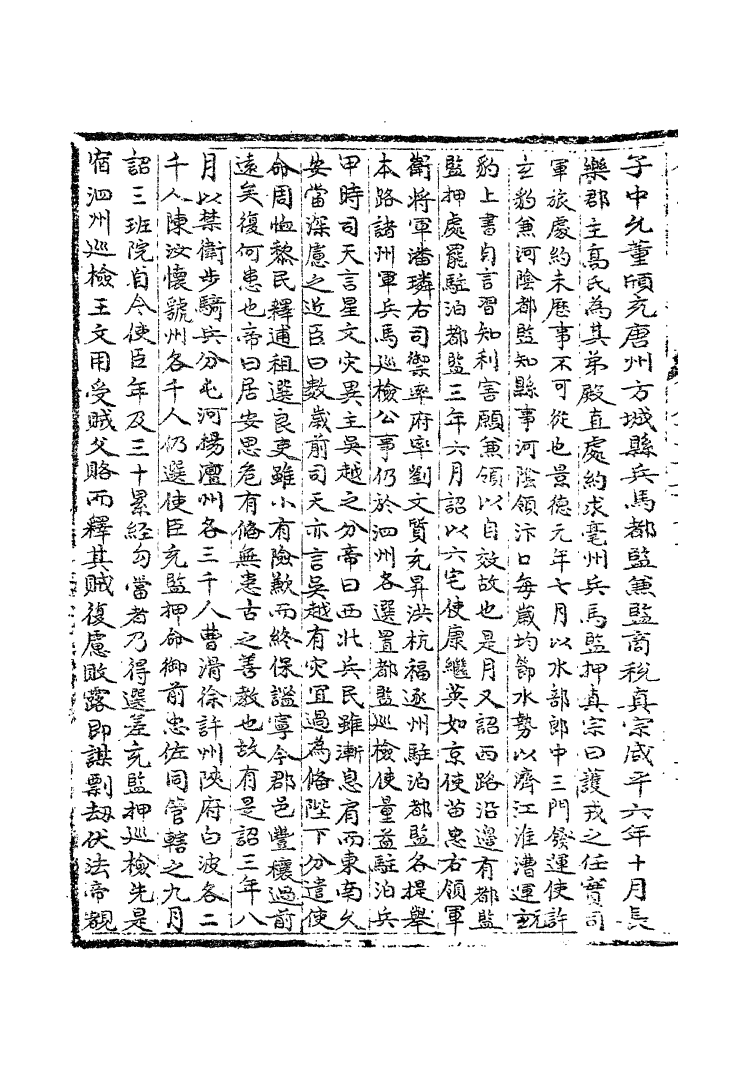 子中允董頎充唐州方城縣兵馬都監兼監商稅真宗咸平六年十月長
樂郡主高氏為其弟殿直處約求亳州兵馬監押真宗曰護戎之任實司
軍旅處約未歷事不可從也景德元年七月以水部郎中三門發運使許
玄豹兼河陰都監知縣事河陰領汴口每歲均節水勢以濟江淮漕運玄
豹上書自言習知利害願兼領以自效故也是月又詔西路沿邊有都監
監押處罷駐泊都監三年六月詔以六宅使康繼英如京使苗忠右領軍
衛將軍潘璘右司禦率府率劉文質充昇洪杭福逐州駐泊都監各提舉
本路諸州軍兵馬巡檢公事仍於泗州各選置都監巡檢使量益駐泊兵
甲時司天言星文灾異主吳越之分帝曰西北兵民雖漸息肩而東南久
安當深慮之近臣曰數歲前司天亦言吳越有灾宜過為俻陛下分遣使
命周恤黎民釋逋租選良吏雖小有險歉而終保謐寧今郡邑豐穰過前
遠矣復何患也帝曰居安思危有俻無患古之善教也故有是詔三年八
月以禁衛步騎兵分屯河楊澶州各三千人曹滑徐許州陝府白波各二
千人陳汝懷號州各千人仍選使臣充監押命御前忠佐同管轄之九月
詔三班院自今使臣年及三十累經勾當者乃得選差充監押巡檢先是
宿泗州巡檢王文用受賊父賂而釋其賊復慮敗露即謀剽刼伏法帝覩